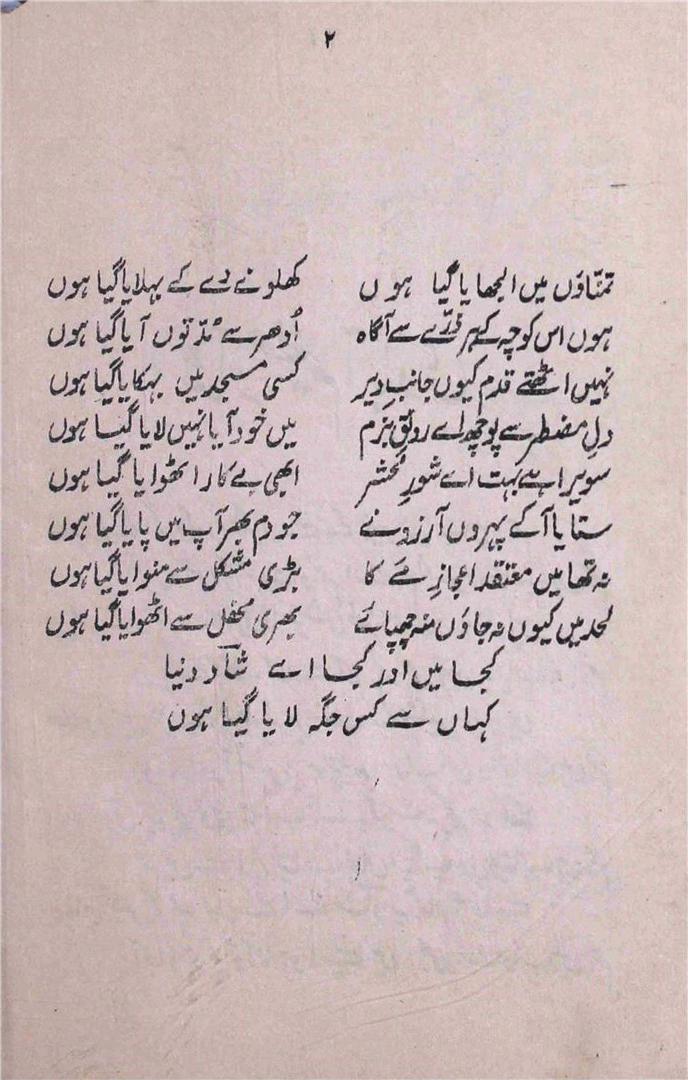 ۲
تمنّاؤں میں الجھایا گیا ہوں کھلونے دے کے بہلایا گیا ہوں
ہوں اس کوچہ کے ہر ذرّے سے آگاہ اُدھر سے مدّتوں آیا گیا ہوں
نہیں اٹھتے قدم کیوں جانب دیر کسی مسجد میں بہکایا گیا ہوں
دلِ مضطر سے پوچھ اے رونقِ بزم میں خود آیا نہیں لایا گیا ہوں
سویرا ہے بہت اے شورِ محشر ابھی بے کار اٹھوایا گیا ہوں
ستایا آ کے پہروں آرزو نے جو دم بھر آپ میں پایا گیا ہوں
نہ تھا میں معتقد اعجازِ مے کا بڑی مشکل سے منوایا گیا ہوں
لحد میں کیوں نہ جاؤں منہ چھپائے بھری محفل سے اٹھوایا گیا ہوں
کجا میں اور کجا اے شاد دنیا
کہاں سے کس جگہ لایا گیا ہوں